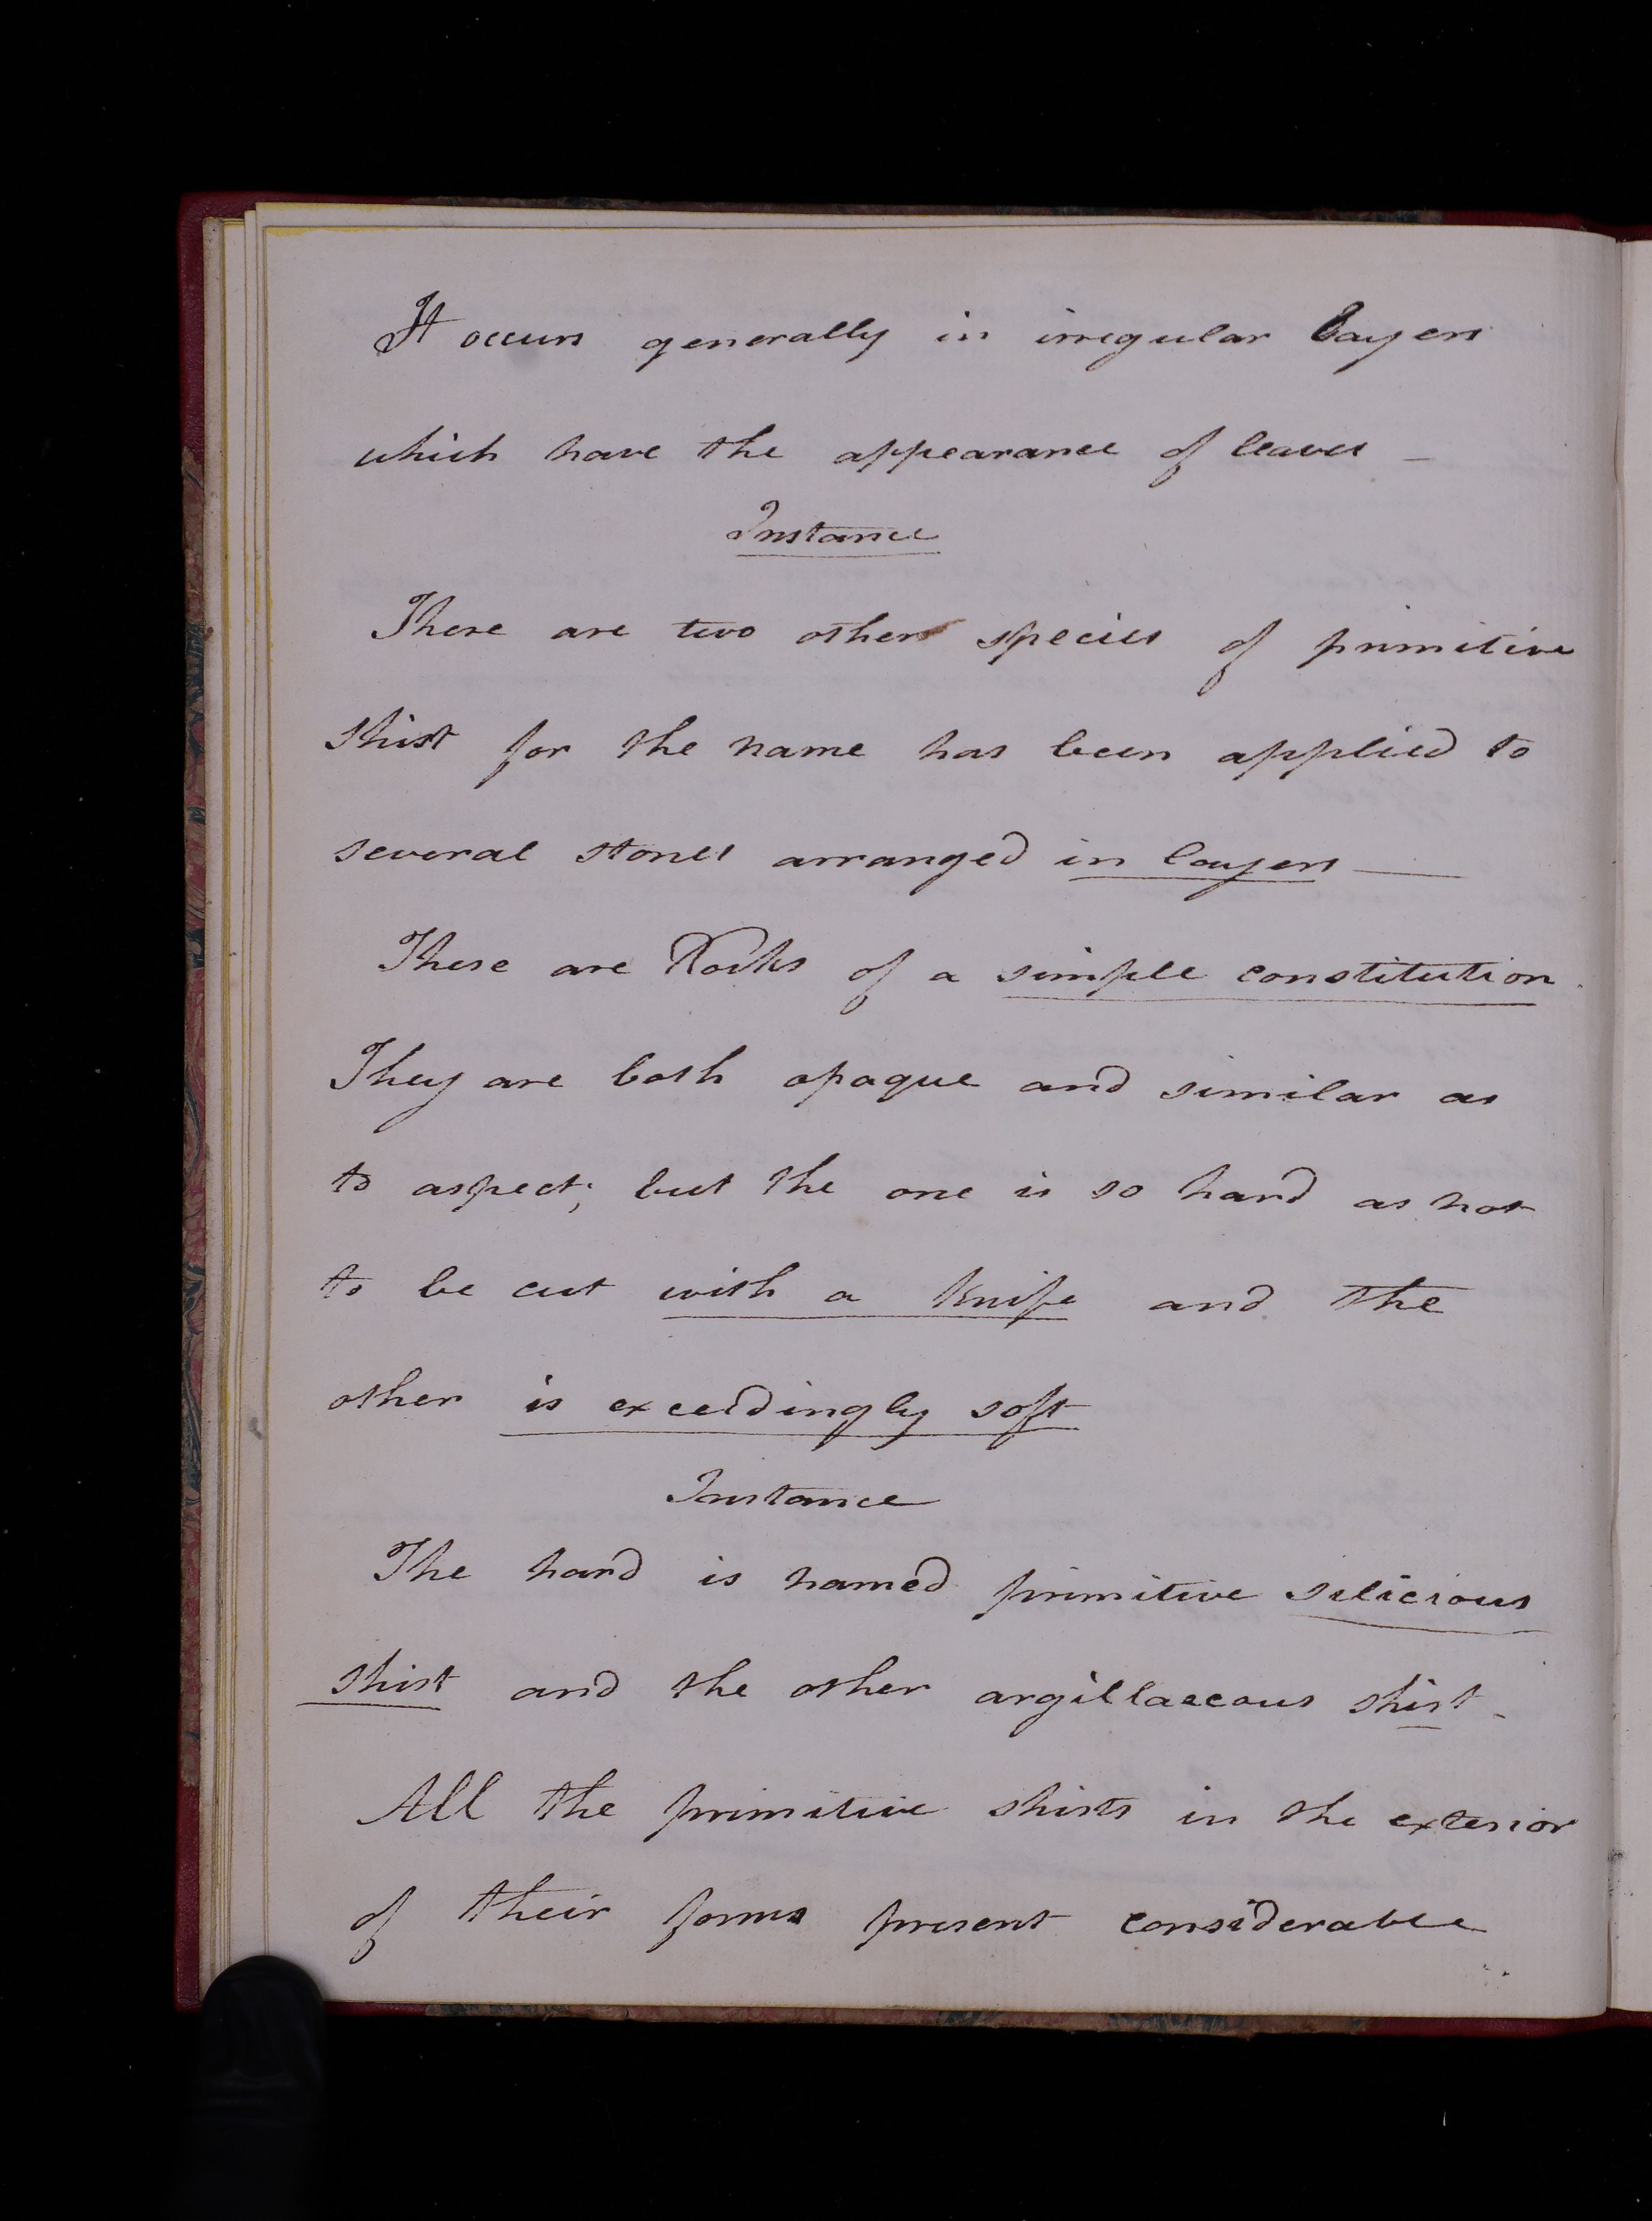 It occurs generally in irregular layers
which have the appearance of leaves –
Instance
There are two other species of primitive
shist for the name has been applied to
several stones arranged in layers —
These are Rocks of a simple constitution
They are both opaque and similar as
to aspect; but the one is so hard as not
to be cut with a knife and the
other is exceedingly soft
Instance
The hard is named primitive silicious
shist and the other argillaceous shist –
All the primitive shists in the exterior
of their forms present considerable